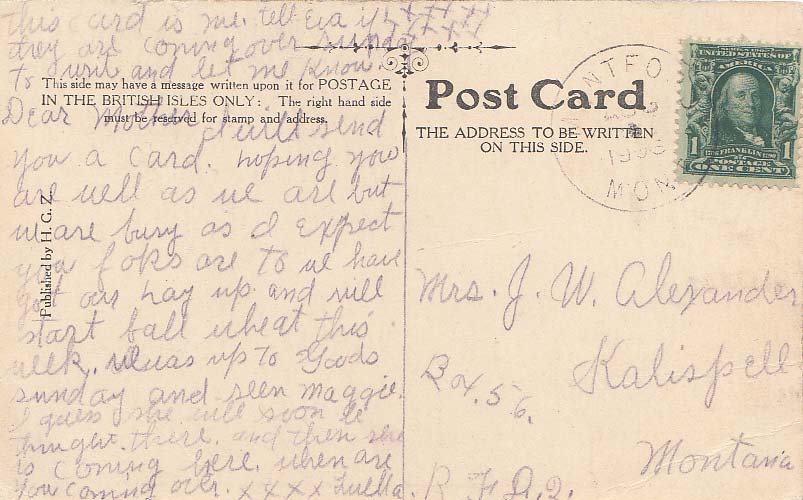 this card is me. tell Eva if
they are coming over Sunday
to write and let me know.
xxxxx
xxxx
This side may have a message written upon it for POSTAGE
IN THE BRITISH ISLES ONLY: The right hand side
must be reserved for stamp and address.
Dear Mother I will send
you a card. hoping you
are well as we are but
we are busy as I expect
you foks are to we have
got our hay up and will
start fall wheat this
week. was up to Goods
sunday and seen Maggie.
I guess she will soon be
there. and then she
is coming here. when are
you coming over. x x x x Luella.
Published by H. G. Z.
Post Card
THE ADDRESS TO BE WRITTEN
ON THIS SIDE.
MONTFORD
MONT
UNITED STATES OF
AMERICA
1 1
FRANKLIN
POSTAGE
ONE CENT
Mrs. J. W. Alexander
Kalispell
Box. 56.
Montana
R F D. 2.